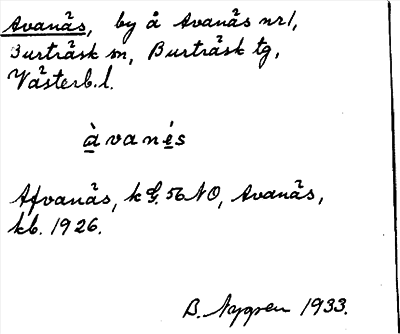 Avanäs, by å Avanäs nr 1,
Burträsk sn, Burträsk tg,
Västerb. l.
àvanés
Afvanäs, k G. 56 NO, Avanäs,
kb. 1926.
B. Nygren 1933.